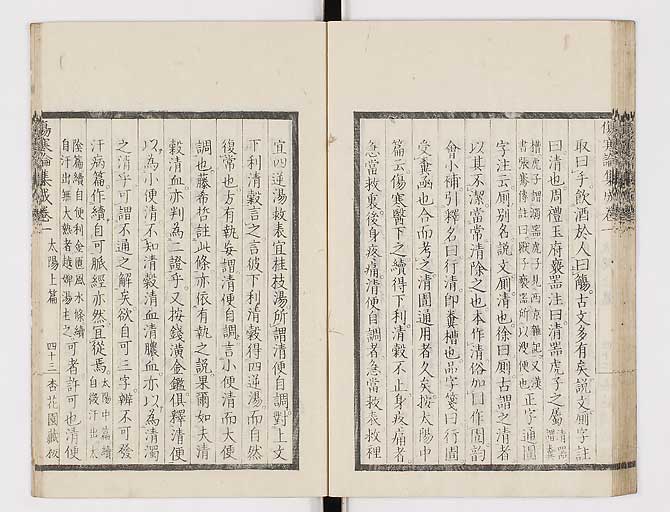 取曰乎飲酒於人曰觴古文多有矣説文厠字註
曰清也周禮玉府褻器注曰清器虎子之屬清器謂糞
槽虎子謂溺器虎子見西京雜記又漢
書張騫傳註曰獸子褻器所以溲便也正字通圊
字注云厠别名説文厠清也徐曰厠古謂之清者
以其不潔當常清除之也本作清俗加囗作圊韵
會小補引釋名曰行清即糞槽也品字箋曰行圊
受糞凾也合而考之清圊通用者久矣按太陽中
篇云傷寒醫下之續得下利清穀不止身疼痛者
急當救裏後身疼痛清便自調者急當救表救裡
宜四逆湯救表宜桂枝湯所謂清便自調對上文
下利清穀言之言彼下利清穀得四逆湯而自然
復常也方有執妄謂清便自調言小便清而大便
調也藤希哲註此條亦依有執之説果爾如夫清
穀清血亦判為二證乎又按錢潢金鑑俱釋清便
以為小便清不知清穀清血清膿血亦以為清濁
之清乎可謂不通之解矣欲自可三字辨不可發
汗病篇作續自可脈經亦然宜從焉太陽中篇續
自後汗出太
陰篇續自便利金匱風水條續
自汗出無大熱者越婢湯主之可者許可也清便
傷寒論集成卷一
太陽上篇
四十三
杏花園藏板